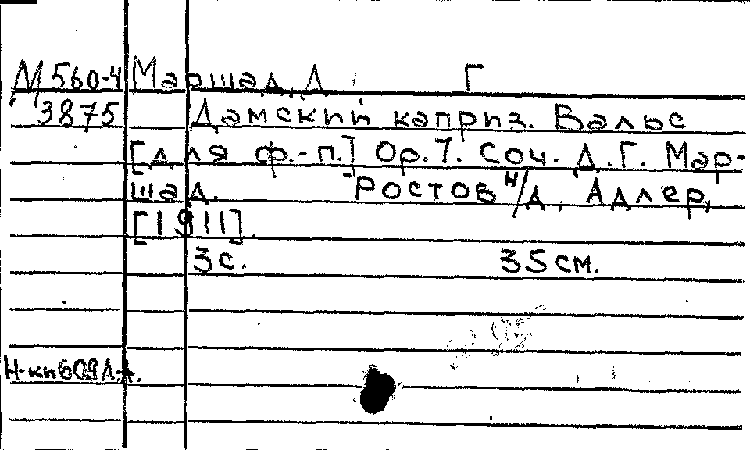 М 560-4 Маршад, Д. Г
3875 Дамский каприз. Вальс
[для ф.-п.] Ор.7. Соч. Д.Г. Мар-
шад. Ростов н/Д, Адлер,
[1911].
3с. 35 см.